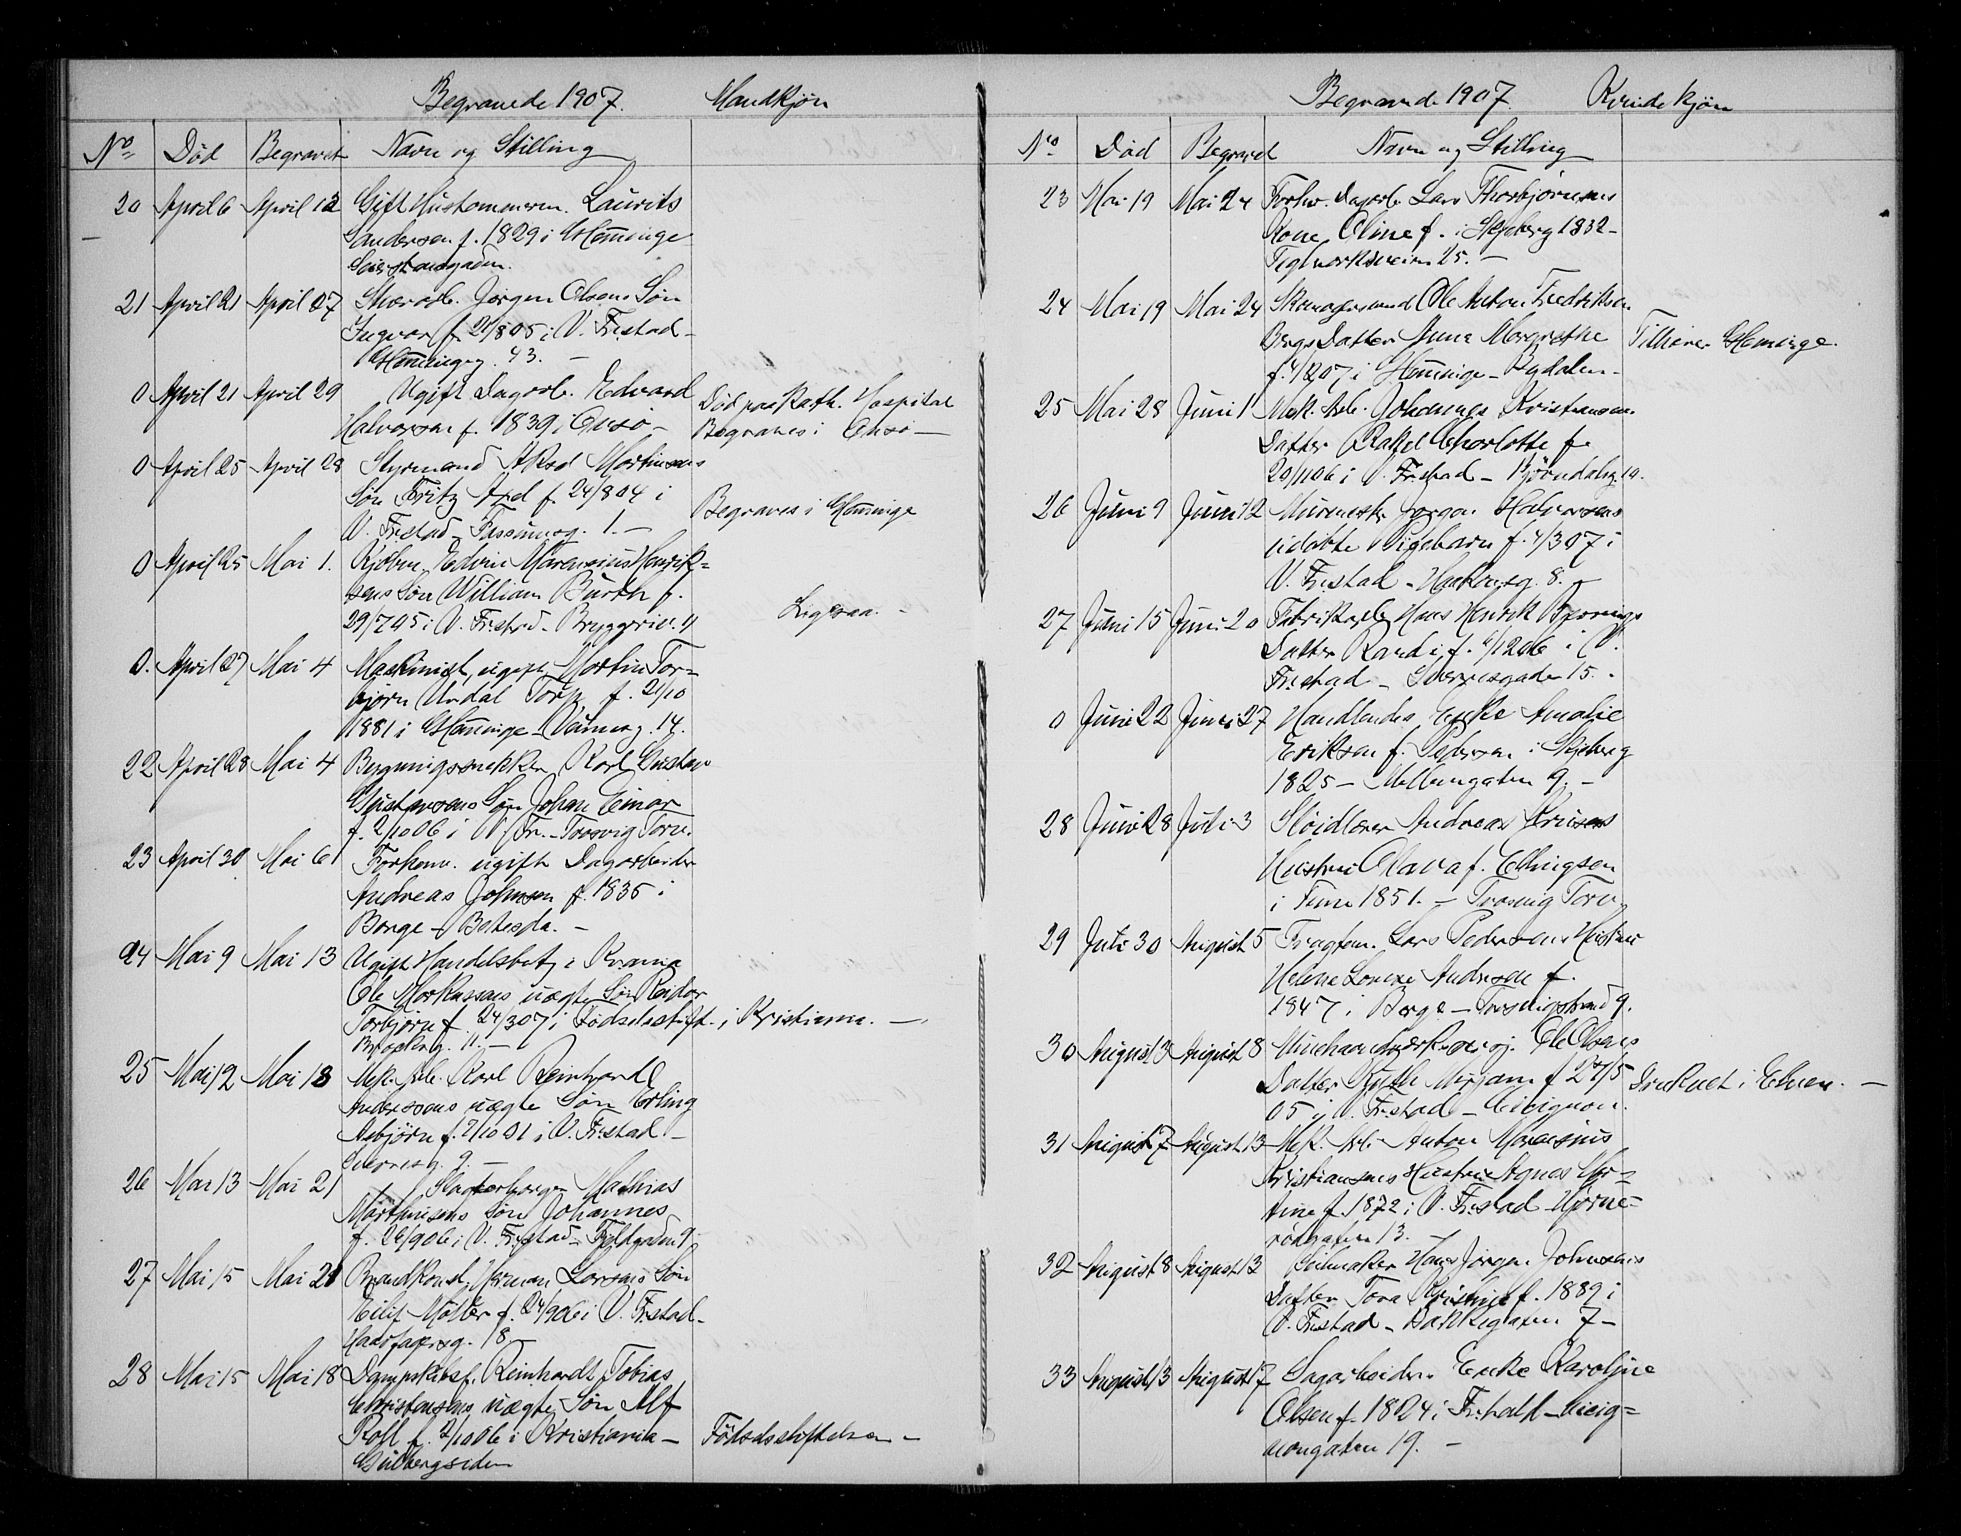 Begravede 1907. Mandkjøn
No Død Begravet Navn og Stilling
20 April 6 April 12 Gift Hustømmerm. Laurits
Andersen f. 1829 i Glemminge
21 April 21 April 27 Jørgen Olsens Søn
Ingvar f. 21/8 05 i V. Fr.stad -
Glemmingeg. 43. -
0 April 21 April 29 Ugift Dagarb. Edvard
Halvorsen f. 1839 i Onsø -
Død paa Kath. Hospital
Begraves i Onsø -
0 April 25 April 28 Styrmand Aksel Martinsens
Søn Fritz Axel f. 24/8 04 i
V. Fr.stad 1. -
Begraves i Glemminge
0 April 25 Mai 1. Kjøbm. Edvin Marensius Henrik=
sens Søn William Barth f.
29/7 95 i V. Fr.stad - Bryggeriv. 4
Ligesaa. -
0. April 27 Mai 4 Maskinist, ugift Martin Tor=
bjørn Undal Torp f. 21/10
1881 i Glemminge 14.
22 April 28 Mai 4 Bygningssnekker Karl Gustav
Gustavsens Søn Johan Einar
f. 2/10 06 i V. Fr. - Trosvig Torv.
23 April 30 Mai 6 Forhenv. ugift Dagarbeider
Andreas Johnsen f. 1835 i
Borge - Betesda. -
24 Mai 9 Mai 13 Ugift Handelsbetj. i Krania
Ole Markussens uægte Søn Reidar
Torbjørn f. 24/3 07 i Fødselsstift. i Kristiania. -
11. -
25 Mai 12 Mai 18 Mek. Arb. Karl Reinhardt
Anderssens uægte Søn Erling
Asbjørn f. 2/10 01 i V. Fr.stad -
Sverresg. 9. -
26 Mai 13 Mai 21 Slagterborger Mathias
Martinsens Søn Johannes
f. 26/9 06 i V. Fr.stad - Feldtgaden 9.
27 Mai 15 Mai 21 Brandkonst. Herman Larsens Søn
Eilif Møller f. 24/9 06 i V. Fr.stad -
Haarfagersg. 18 -
28 Mai 15 Mai 18 Dampskibsf. Reinhardt Tobias
Christensens uægte Søn Alf
Rolf f. 2/10 06 i Kristiania -
Gudbergsiden
Fødselsstiftelsen -
Begravede 1907. Kvindekjøn
No Død Begravet Navn og Stilling
23 Mai 19 Mai 24 Forhv. Dagarb. Lars Thorbjørnsens
Kone Oline f. i Skjeberg 1832 -
Teglverksveien 25. -
24 Mai 19 Mai 24 Ole Anton Fredriksen
Bergs Datter Anna Margrethe
f. 4/12 07 i Glemminge - Rydalen -
Tilhører Glemminge.
25 Mai 28 Juni 1 Mek. Arb. Johannes Kristiansens
Datter Rakel Charlotte f.
20/11 06 i V. Fr.stad - Bjørndalsg. 19.
26 Juni 9 Juni 12 Murmestr. Jørgen Halvorsens
udøbte Pigebarn f. 4/3 07 i
V. Fr.stad - Haakonsg. 8. -
27 Juni 15 Juni 20 Fabrikarb. Hans Henrik Bjernings
Datter Randi f. 6/12 06 i V.
Fr.stad - Sverresgaden 15. -
0 Juni 22 Juni 27 Handlendes Enke Amalie
Eriksen f. Pedersen i Skjeberg
1825 - Mellemgaten 9. -
28 Juni 28 Juli 3 Sløidlærer Andreas
Hustru Olava f. Ellingsen
i Tune 1851. - Trosvig Torv.
29 Juli 30 August 5 Fragtem. Lars Pedersens Hustru
Helene Lovise Andersen f.
1847 i Borge - Trosvigstrand 9.
30 August 3 August 8 Ole Olsens
Datter Ruth Mirjam f 27/5
05 i V. Fr.stad - Cicignon.
Druknet i Elven. -
31 August 7 August 13 Mek. Arb. Anton Marensius
Kristiansens Hustru Agnes Mar=
tine f. 1872 i V. Fr.stad Hjørne=
rødgaten 13.
32 August 8 August 13 Seilmaker Hans Jørgen Johnsens
Datter Tora Kristine f. 1889 i
V. Fr.stad - Bakkegaten 7 -
33 August 13 August 17 Dagarbeider Enke Karoline
Olsen f. 1824 i Fr.hald - Cicig=
nongaten 19. -